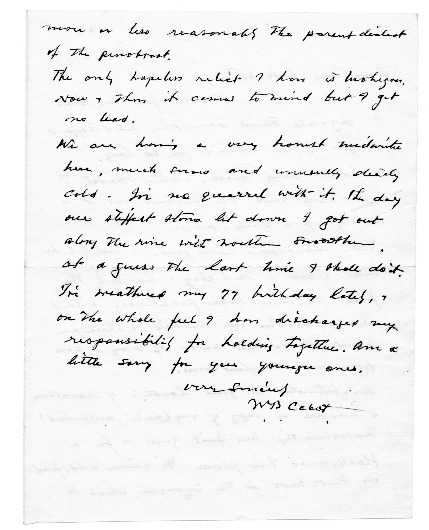 more or less reasonably the parent dialect
of the penobscot.
The only hopeless relict I have is Mohegan.
Now & then it comes to mind but I get
no lead.
We are having a very honest midwinter
here, much snow and unusually steady
cold. I've no quarrel with it. The day
our stiffest storm let down I got out
along the river with snowshoes,
at a guess the last time I shall do it.
I've weathered my 77 birthday lately, &
on the whole feel I have discharged my
responsibility for holding together. Am a
little sorry for you younger ones.
Very sincerely
WB Cabot